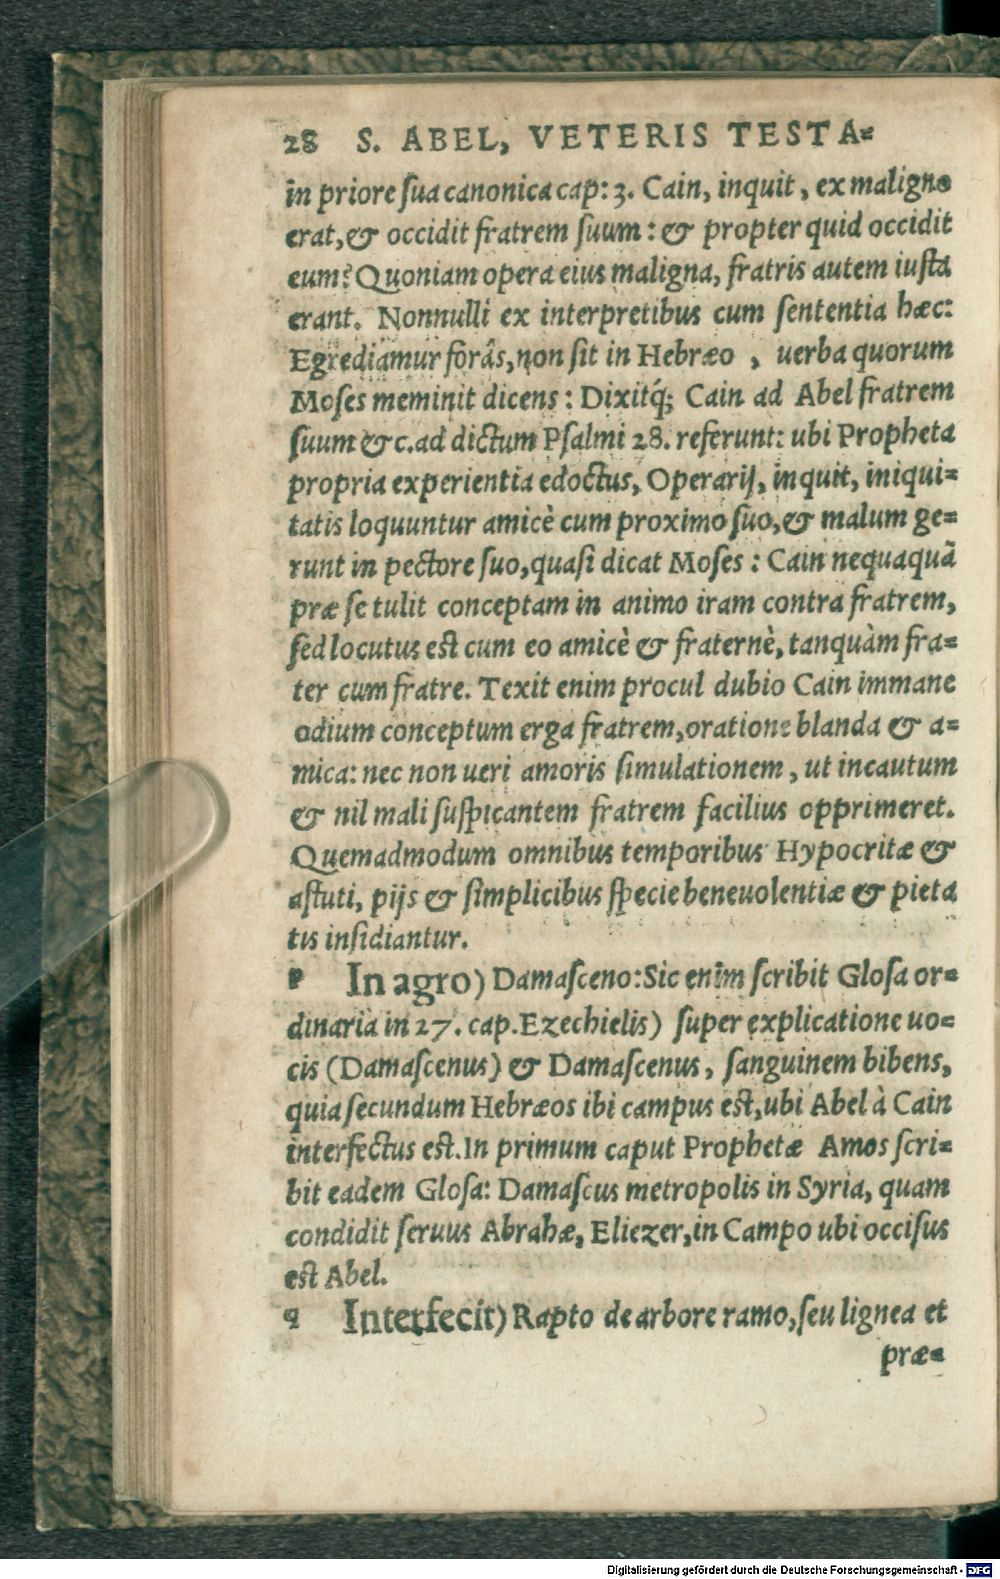 28 S. ABEL, VETERIS TESTA=
in priore ſua canonica cap: 3. Cain, inquit, ex maligno
erat, & occidit fratrem ſuum: & propter quid occidit
eum? Quoniam opera eius maligna, fratris autem iuſta
erant. Nonnulli ex interpretibus cum ſententia hæc:
Egrediamur forâs, non ſit in Hebræo, uerba quorum
Moſes meminit dicens: Dixitq́; Cain ad Abel fratrem
ſuum &c. ad dictum Pſalmi 28. referunt: ubi Propheta
propria experientia edoctus, Operarij, inquit, iniqui=
tatis loquuntur amicè cum proximo ſuo, & malum ge=
runt in pectore ſuo, quaſi dicat Moſes: Cain nequaquã
præ ſe tulit conceptam in animo iram contra fratrem,
ſed locutus eſt cum eo amicè & fraternè, tanquàm fra=
ter cum fratre. Texit enim procul dubio Cain immane
odium conceptum erga fratrem, oratione blanda & a=
mica: nec non ueri amoris ſimulationem, ut incautum
& nil mali ſuſpicantem fratrem facilius opprimeret.
Quemadmodum omnibus temporibus Hypocritæ &
aſtuti, pijs & ſimplicibus ſpecie beneuolentiæ & pieta
tis inſidiantur.
P In agro) Damaſceno: Sic enim ſcribit Gloſa or=
dinaria in 27. cap. Ezechielis) ſuper explicatione uo=
cis (Damaſcenus) & Damaſcenus, ſanguinem bibens,
quia ſecundum Hebræos ibi campus eſt, ubi Abel à Cain
interfectus eſt. In primum caput Prophetæ Amos ſcri=
bit eadem Gloſa: Damaſcus metropolis in Syria, quam
condidit ſeruus Abrahæ, Eliezer, in Campo ubi occiſus
eſt Abel.
q Interfecit) Rapto de arbore ramo, ſeu lignea et
præ=
Digitalisierung gefördert durch die Deutsche Forschungsgemeinschaft - DFG